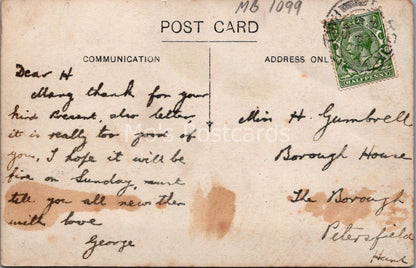 MB 1099
POST CARD
COMMUNICATION
ADDRESS ONL
Dear H
Many thank for your
kind Present, also letter,
it is really too good of
you, I hope it will be
fine on Sunday, must
tell you all news then
with love
George
Miss H. Gumbrell
Borough House
The Borough
Petersfield
Hants
Postcards